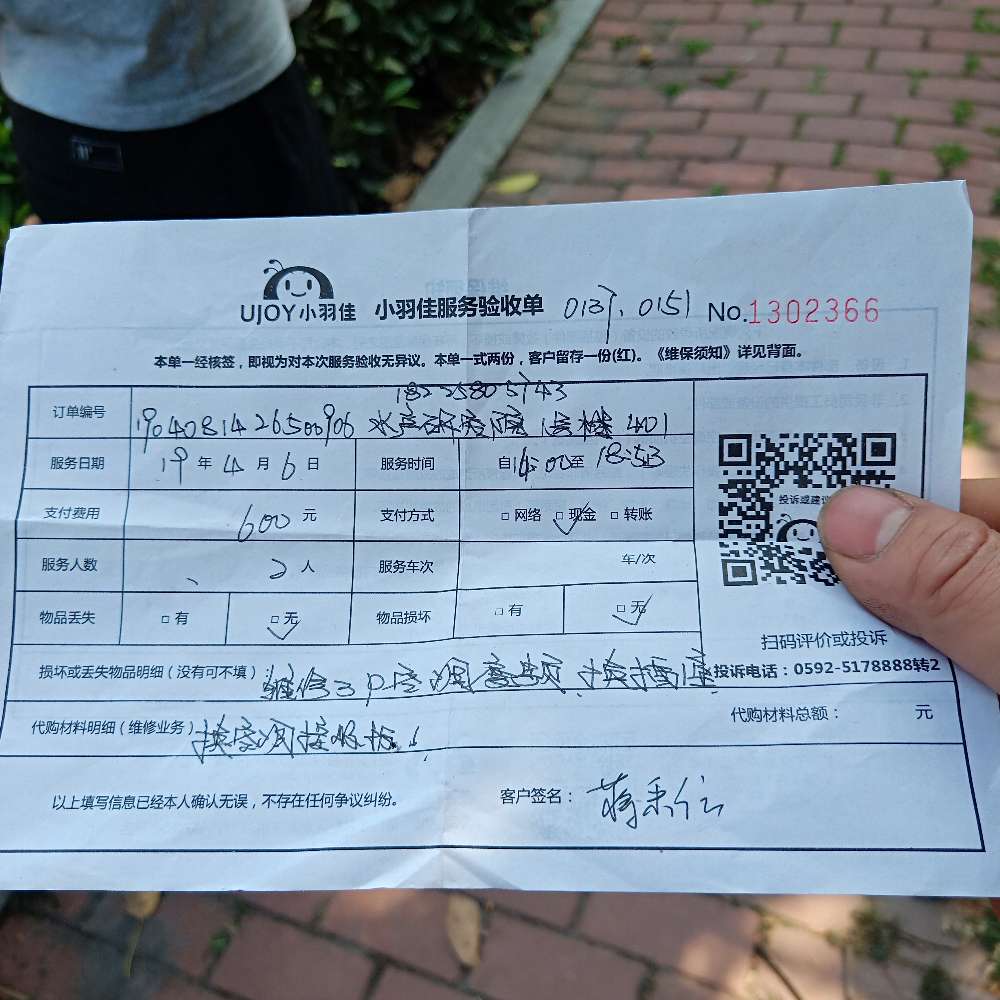 UJOY小羽佳 小羽佳服务验收单 0137. 0151 No.1302366
本单一经核签，即视为对本次服务验收无异议。本单一式两份，客户留存一份(红)。《维保须知》详见背面。
18225805743
订单编号 1904081426500906 水产研究院 401
服务日期 19年4月6日 服务时间 自14:00至18:53
支付费用 600元 支付方式 □网络 □现金 □转账
投诉或建议
服务人数 2人 服务车次 车/次
物品丢失 □有 □无 物品损坏 □有 □无
扫码评价或投诉
损坏或丢失物品明细（没有可不填） 维修3P空调 换插座
投诉电话：0592-5178888转2
代购材料明细（维修业务） 换空调接收板 代购材料总额： 元
以上填写信息已经本人确认无误，不存在任何争议纠纷。 客户签名：